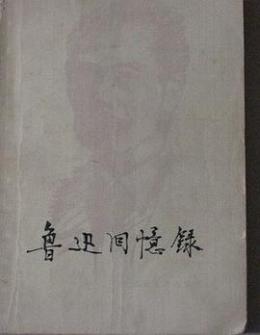 鲁迅回憶録